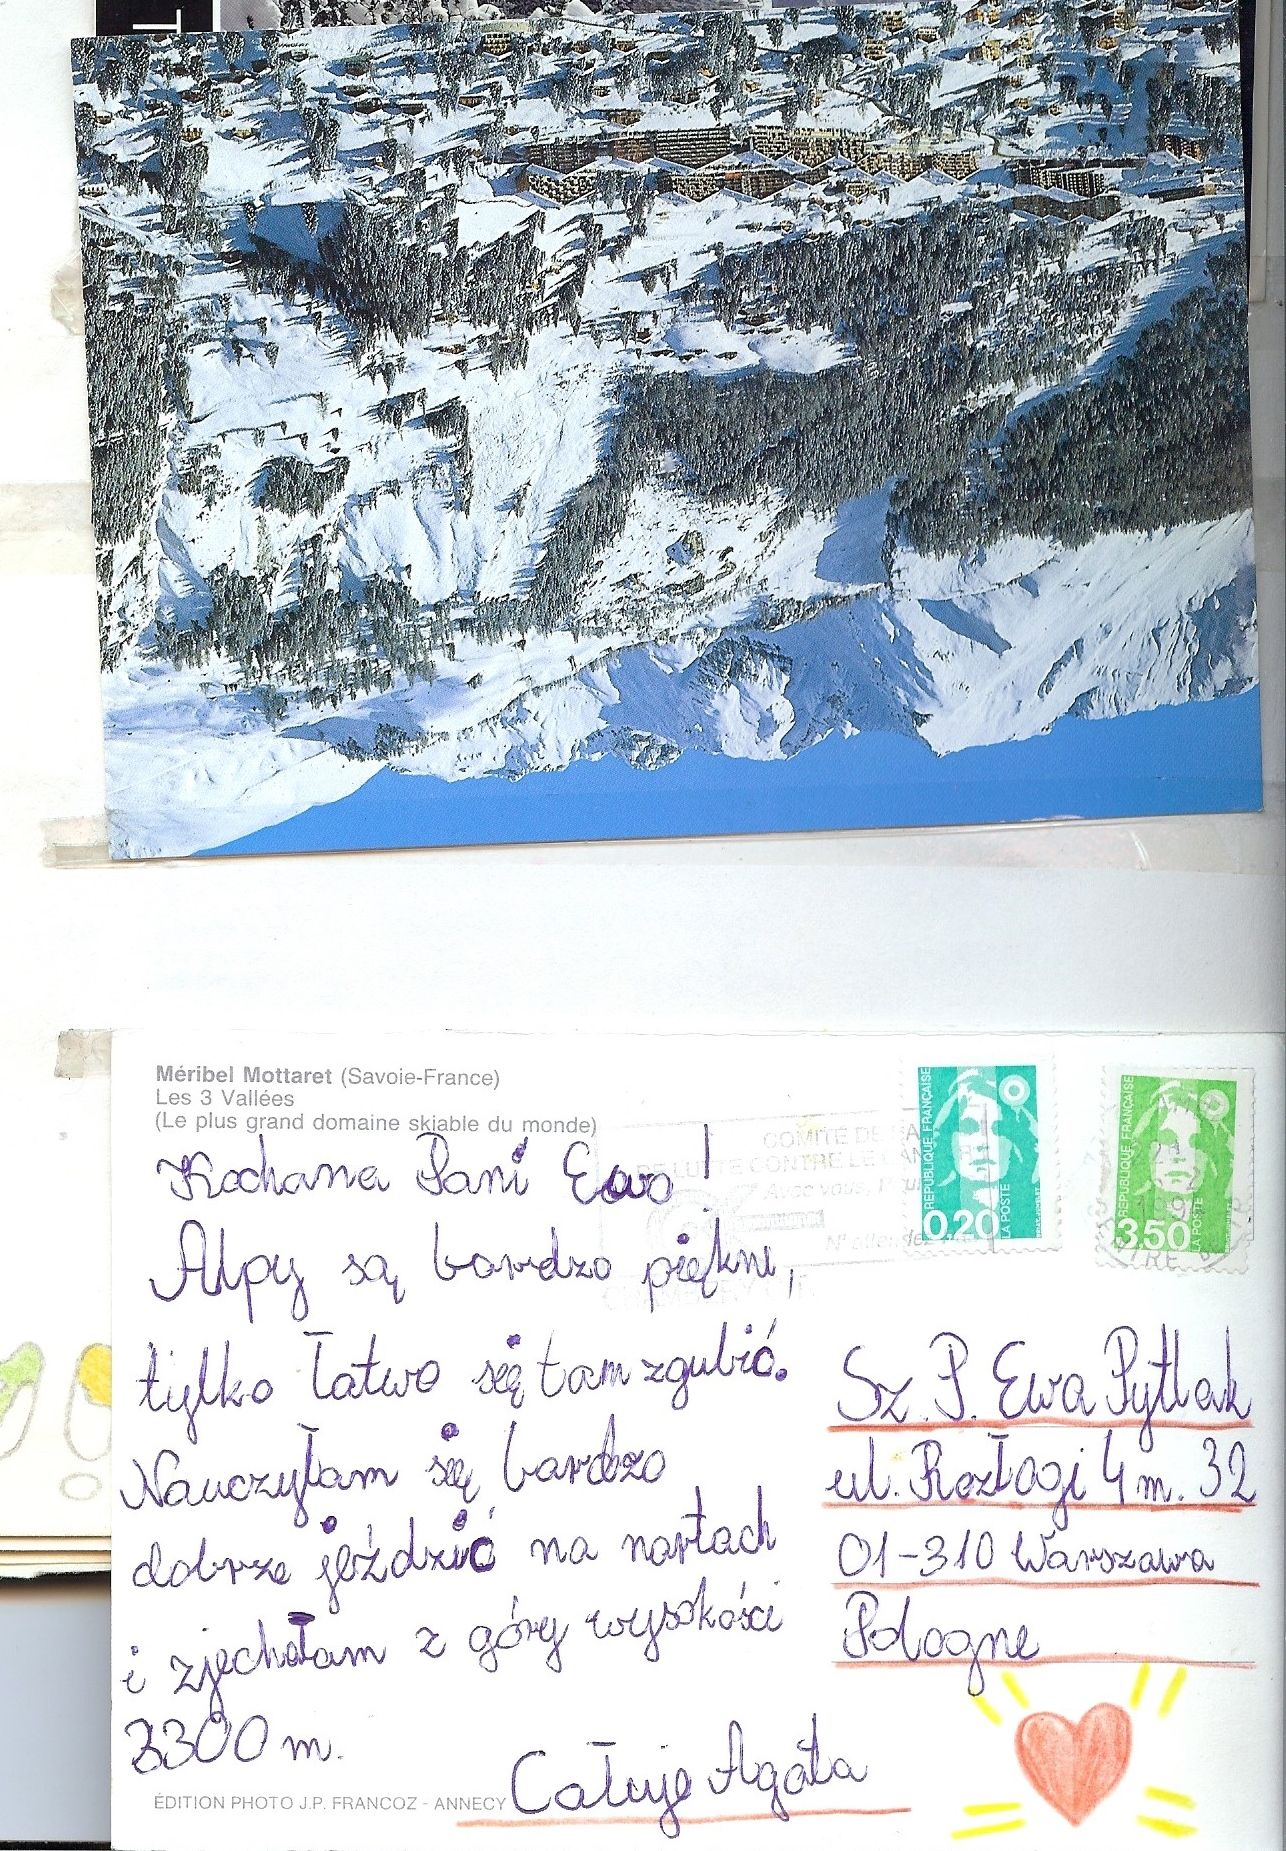 T
Méribel Mottaret (Savoie-France)
Les 3 Vallées
(Le plus grand domaine skiable du monde)
COMITÉ DE
DE LUTTE CONTRE LE
Avec vous,
RÉPUBLIQUE FRANÇAISE
0,20
LA POSTE
RÉPUBLIQUE FRANÇAISE
3,50
LA POSTE
Kochana Pani Ewo!
Alpy są bardzo piękne,
tylko łatwo się tam zgubić.
Nauczyłam się bardzo
dobrze jeździć na nartach
i zjechałam z góry wysokości
3300 m.
Całuję Agata
Sz. P. Ewa Pytlak
ul. Rozłogi 4 m. 32
01-310 Warszawa
Pologne
ÉDITION PHOTO J.P. FRANCOZ - ANNECY